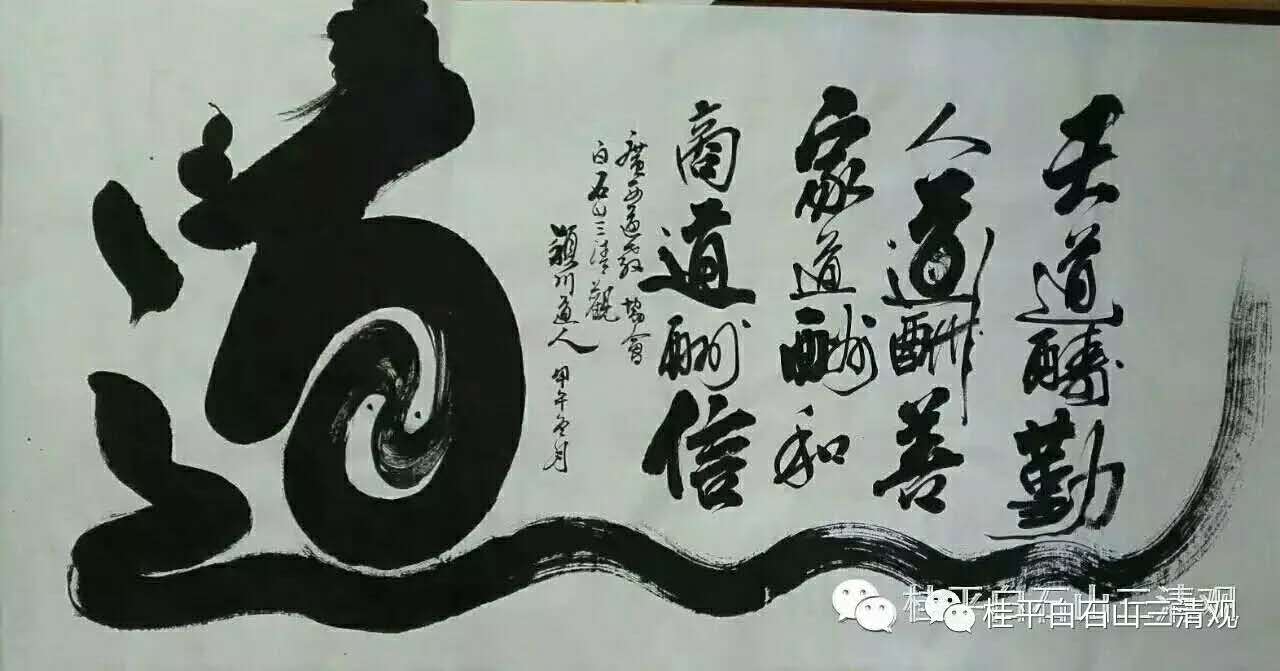 天道醻勤
人道酬善
家道酬和
商道酬信
廣西道教協會
白石山三清觀
穎川道人 甲午冬月
道
桂平白石山三清观
桂平白石山三清观